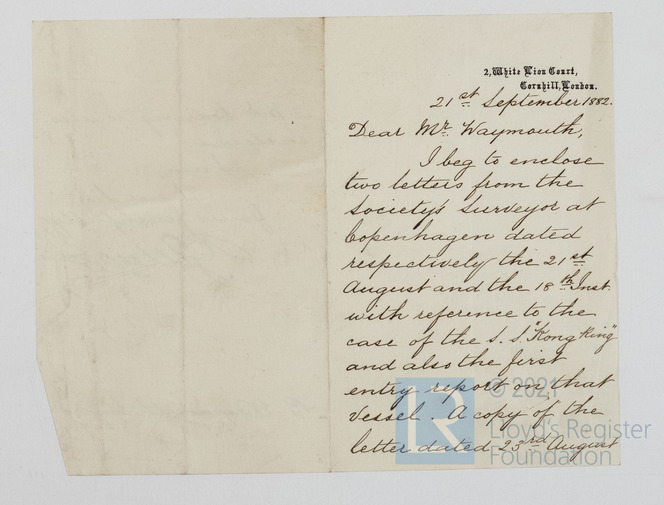 2, White Lion Court,
Cornhill, London.
21st September 1882.
Dear Mr. Waymouth,
I beg to enclose
two letters from the
Society's Surveyor at
Copenhagen dated
respectively the 21st
August and the 18th Inst.
with reference to the
case of the S.S. "Kong Ring"
and also the first
entry report on that
vessel. A copy of the
letter dated 23rd August
© 2021
LR
Lloyd's Register
Foundation